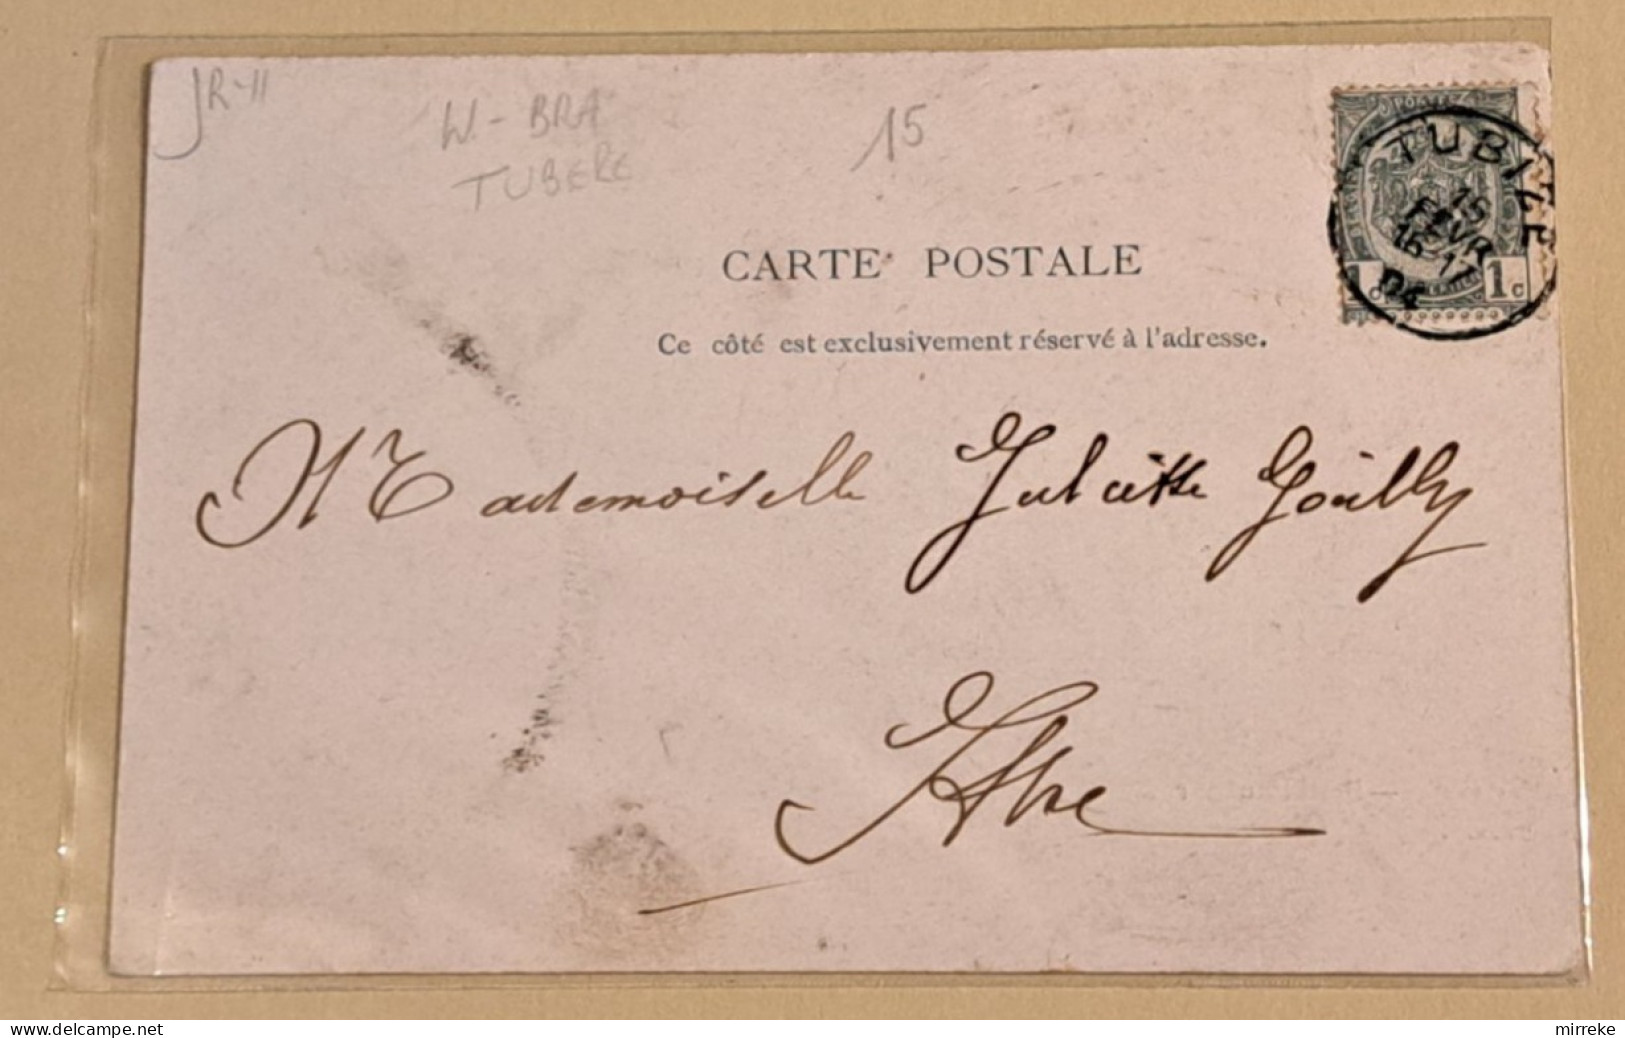 JR-11
W.-BRA
TUBEKE
15
TUBIZE
15
FEVR
16-17
04
1c 1c
CARTE POSTALE
Ce côté est exclusivement réservé à l'adresse.
Mademoiselle Juliette Gouilly
delcampe.net
mirreke